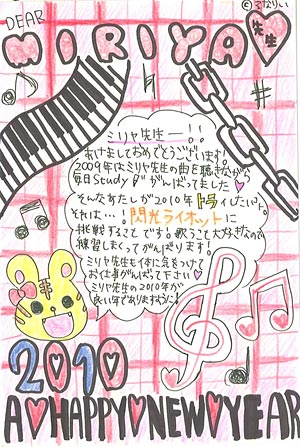 DEAR
MIRIYA
先生
ミリヤ先生ー!!
あけましておめでとうございます!
2009年はミリヤ先生の曲を聴きながら
毎日Studyがんばってました♥
そんなあたしが2010年トライしたい
それは…!閃光ライオットに
挑戦することです。歌うこと大好きなので
練習しまくってがんばります!
ミリヤ先生も体に気をつけて
お仕事がんばって下さい♡
ミリヤ先生の2010年が
良い年でありますように!
2010
A♥HAPPY♥NEW♥YEAR